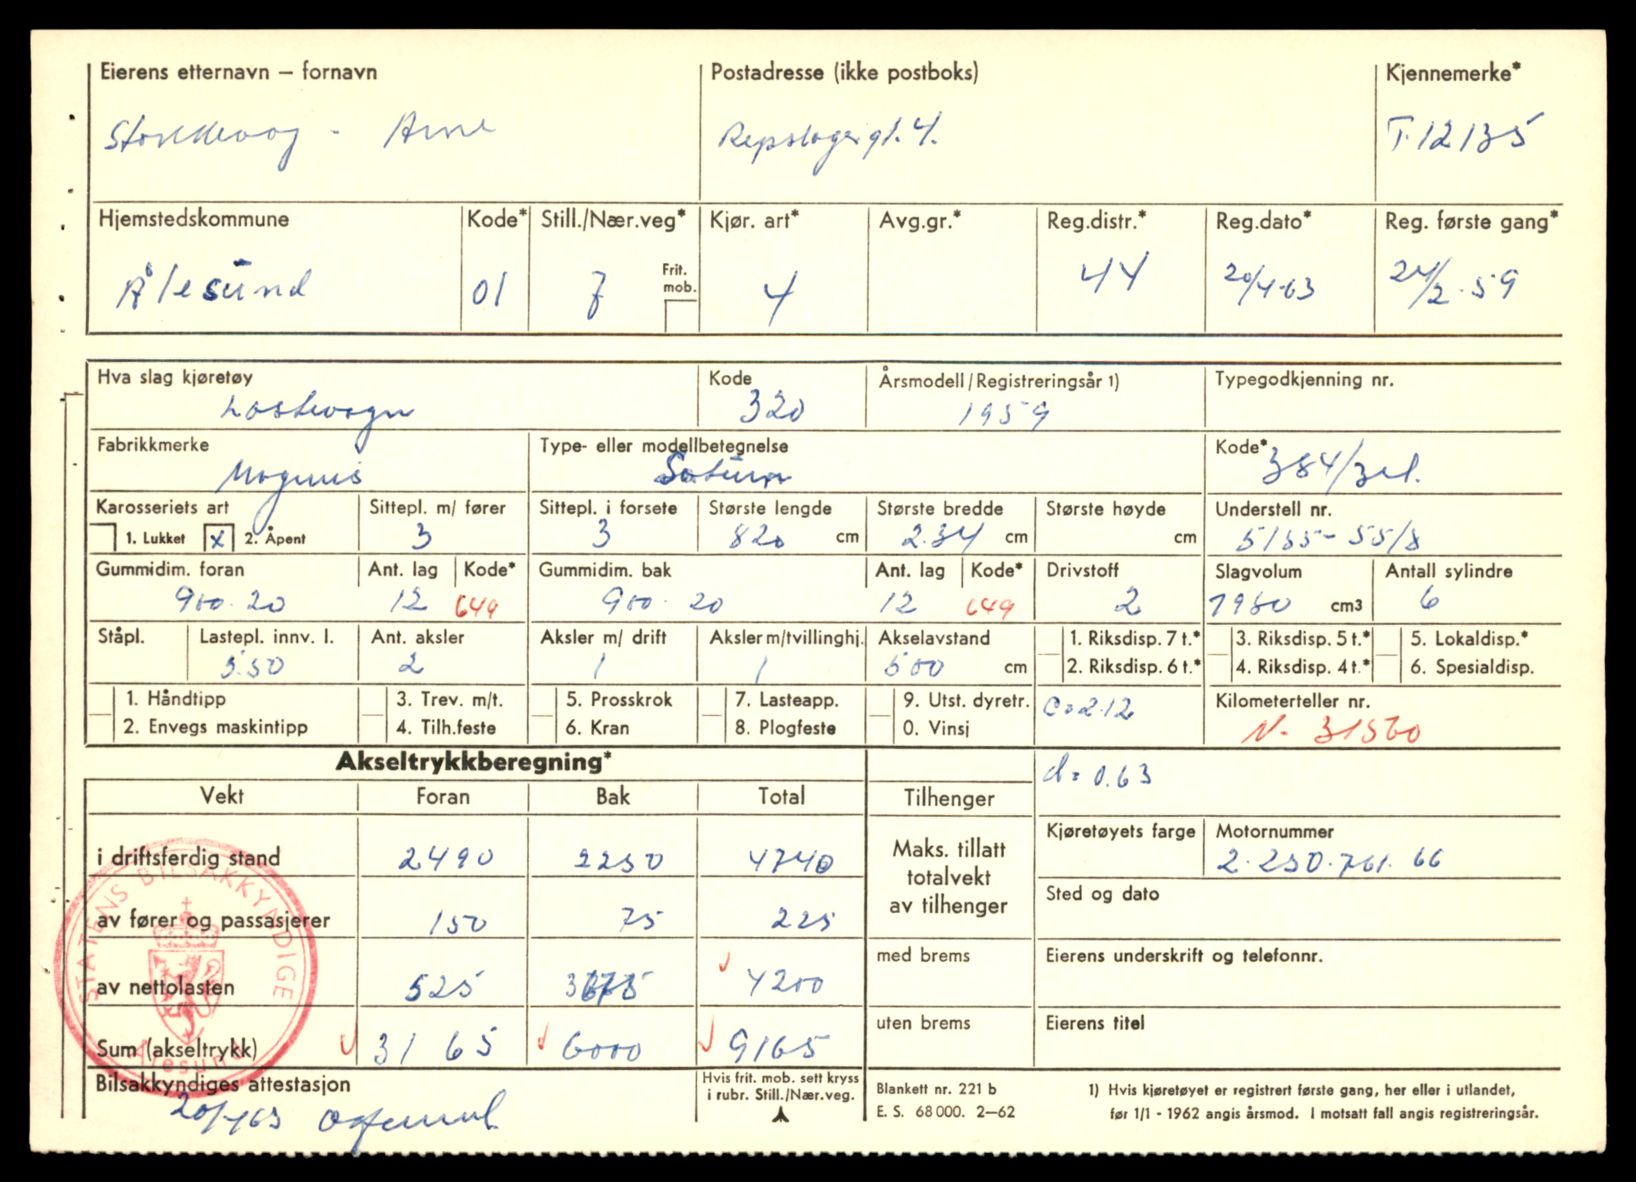 Eierens etternavn – fornavn
Postadresse (ikke postboks)
Kjennemerke*
Arne
Repslagergt. 4.
T-12135
Hjemstedskommune
Kode*
Still./Nær.veg*
Kjør. art*
Avg.gr.*
Reg.distr.*
Reg.dato*
Reg. første gang*
Ålesund
01
7
Frit. mob.
4
44
20/4-63
24/2-59
Hva slag kjøretøy
Kode
Årsmodell/Registreringsår 1)
Typegodkjenning nr.
Lastevogn
320
1959
Fabrikkmerke
Type- eller modellbetegnelse
Kode*
Magirus
Saturn
384/321.
Karosseriets art
Sittepl. m/ fører
Sittepl. i forsete
Største lengde
Største bredde
Største høyde
Understell nr.
1. Lukket
x
2. Åpent
3
3
820 cm
2.34 cm
cm
5155-55/8
Gummidim. foran
Ant. lag
Kode*
Gummidim. bak
Ant. lag
Kode*
Drivstoff
Slagvolum
Antall sylindre
900-20
12
649
900-20
12
649
2
7980 cm3
6
Ståpl.
Lastepl. innv. l.
Ant. aksler
Aksler m/ drift
Aksler m/tvillinghj.
Akselavstand
1. Riksdisp. 7 t.*
3. Riksdisp. 5 t.*
5. Lokaldisp.*
5.50
2
1
1
500 cm
2. Riksdisp. 6 t.*
4. Riksdisp. 4 t.*
6. Spesialdisp.
1. Håndtipp
3. Trev. m/t.
5. Prosskrok
7. Lasteapp.
9. Utst. dyretr.
C=2.12
Kilometerteller nr.
2. Envegs maskintipp
4. Tilh.feste
6. Kran
8. Plogfeste
0. Vinsj
N- 31560
Akseltrykkberegning*
d=0.63
Vekt
Foran
Bak
Total
Tilhenger
Kjøretøyets farge
Motornummer
i driftsferdig stand
2490
2250
4740
Maks. tillatt
totalvekt
av tilhenger
2.250.761.66
Sted og dato
av fører og passasjerer
150
75
225
med brems
Eierens underskrift og telefonnr.
av nettolasten
525
3675
4200
uten brems
Eierens titel
Sum (akseltrykk)
3165
6000
9165
STATENS BILSAKKYNDIGE
Ålesund
Bilsakkyndiges attestasjon
20/4 63
Hvis frit. mob. sett kryss
i rubr. Still./Nær.veg.
Blankett nr. 221 b
E. S. 68 000. 2—62
1) Hvis kjøretøyet er registrert første gang, her eller i utlandet,
før 1/1 - 1962 angis årsmod. I motsatt fall angis registreringsår.